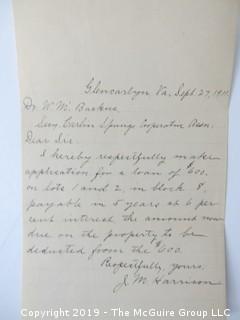 Glencarlyn Va. Sept. 27, 1911
Dr. W. M. Backus
Secy. Carlin Springs Cooperative Assn.
Dear Sir.
I hereby respectfully make
application for a loan of $600.
on lots 1 and 2, in block 8,
payable in 5 years at 6 per
cent interest the amount now
due on the property to be
deducted from the $600.
Respectfully, yours,
J. M. Harrison
Copyright 2019 - The McGuire Group LLC